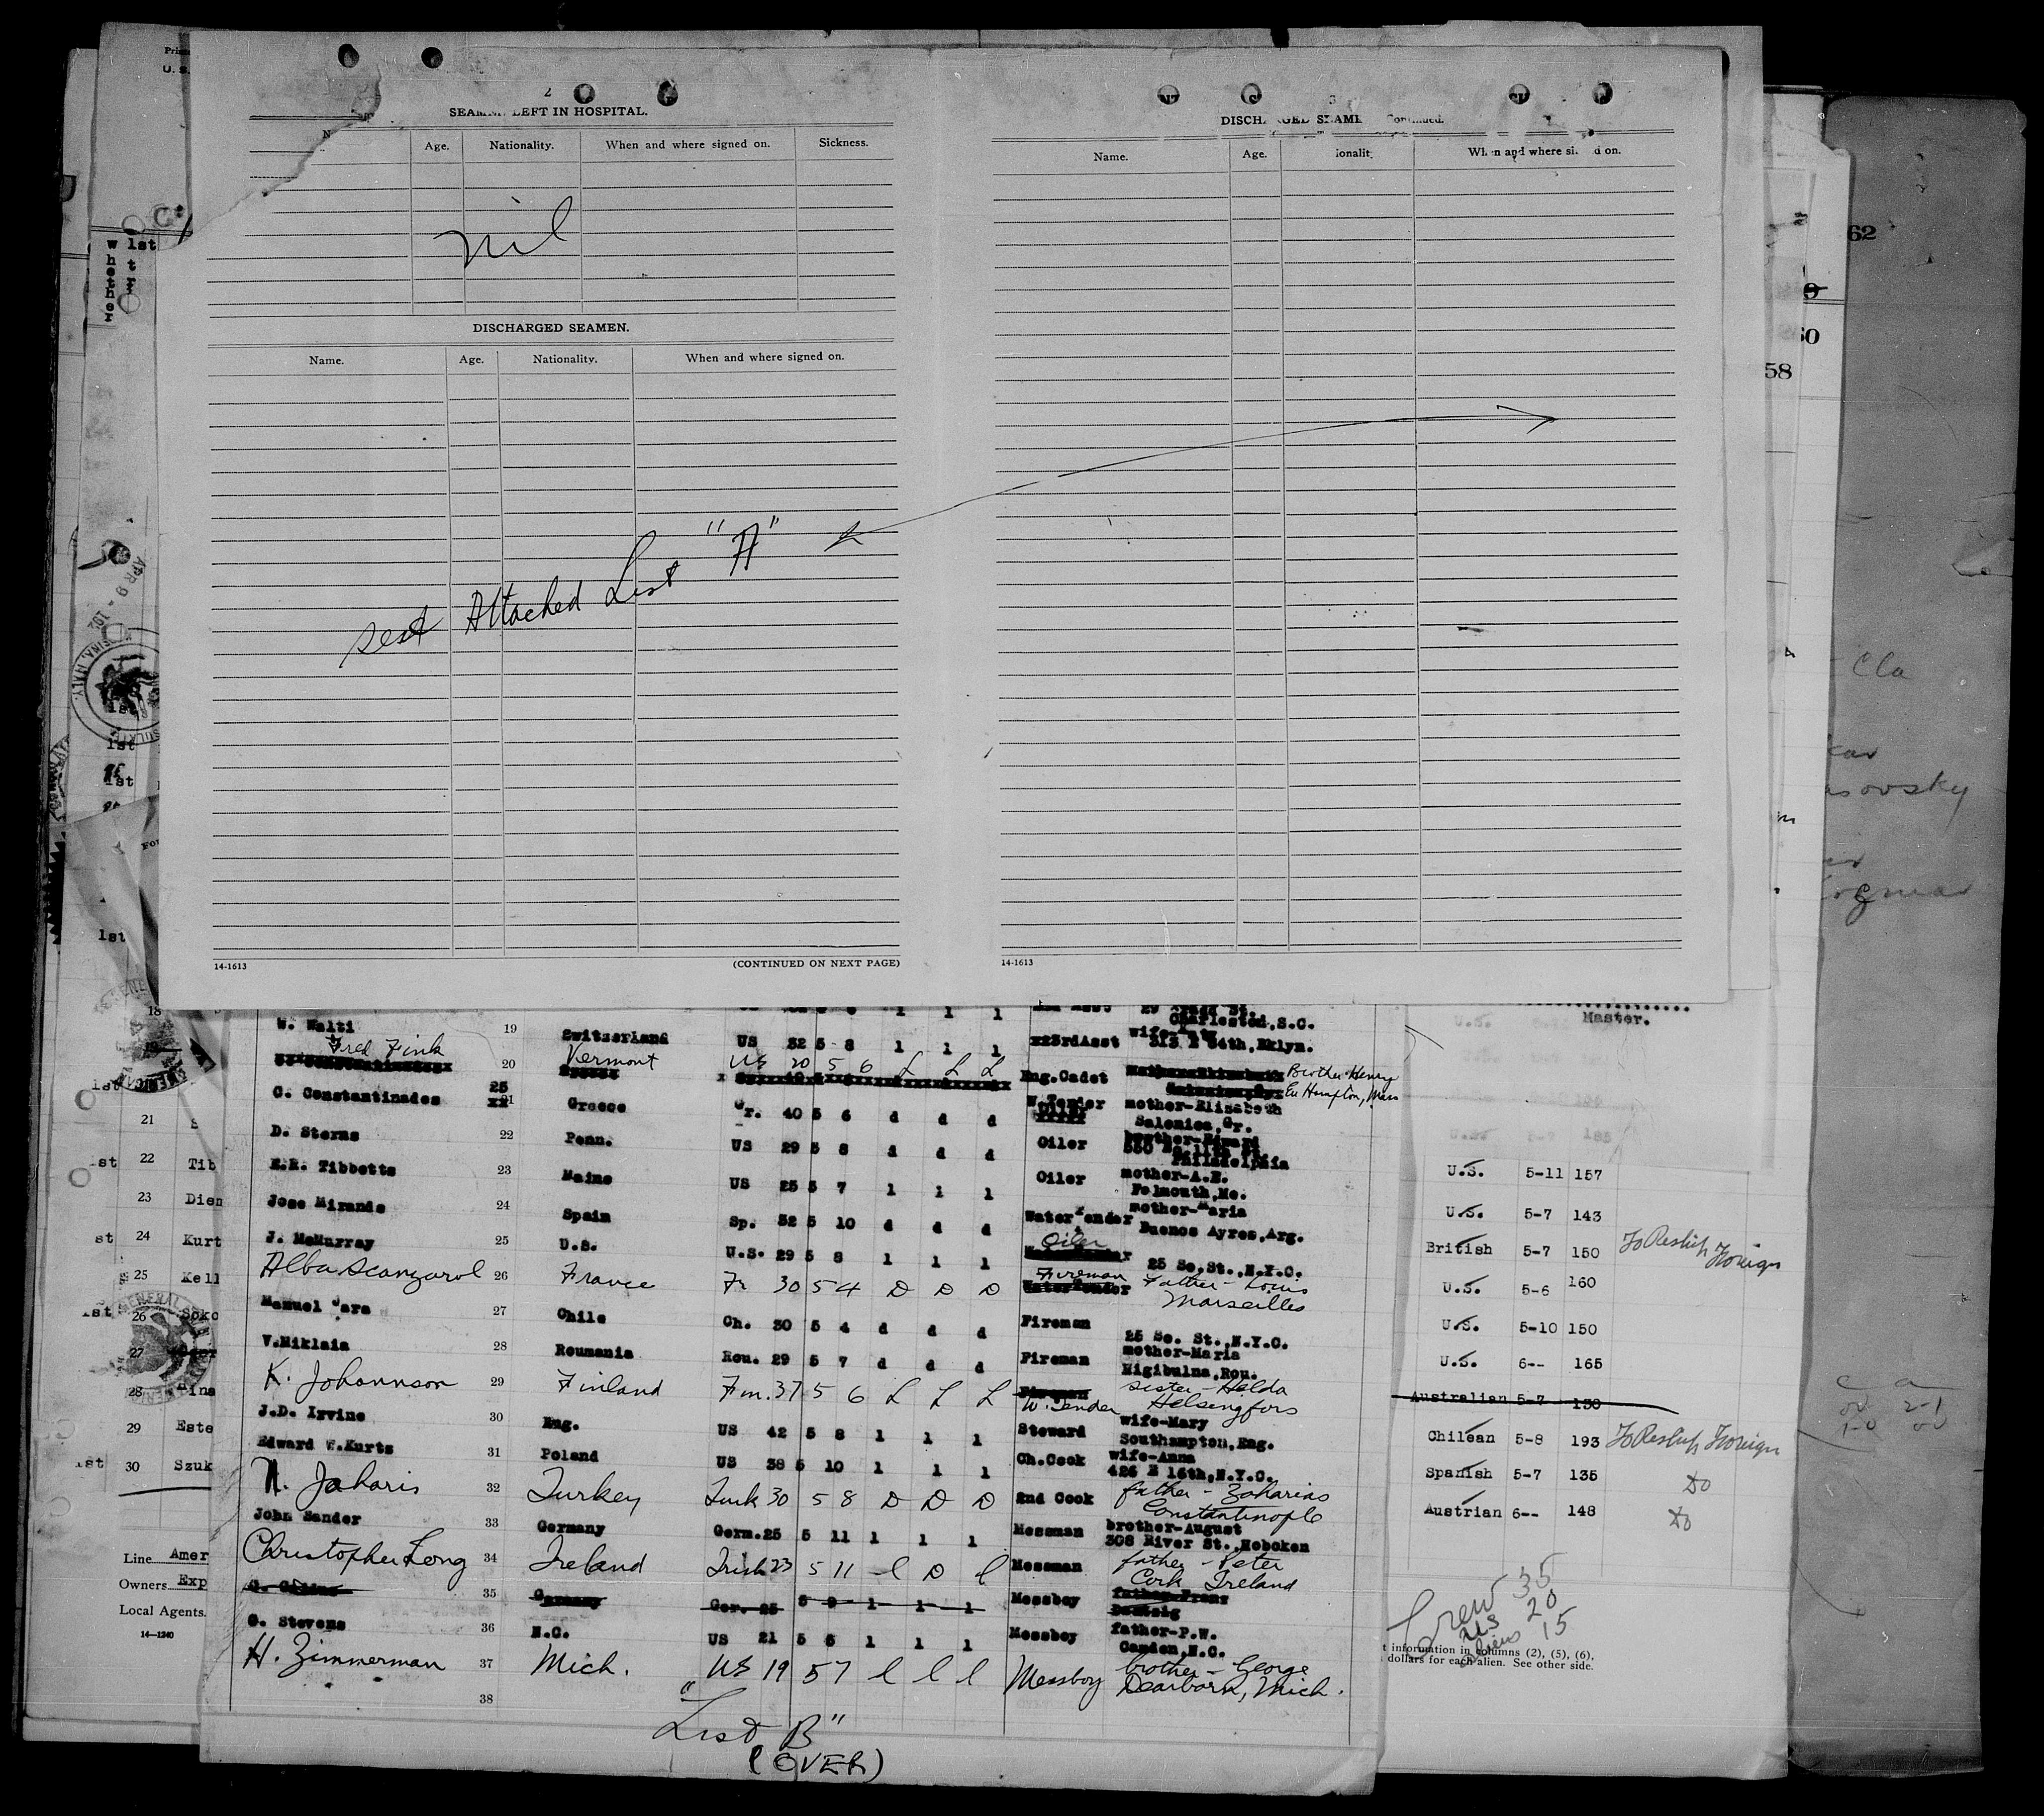 2
SEAMEN LEFT IN HOSPITAL.
Age. Nationality. When and where signed on. Sickness.
nil
DISCHARGED SEAMEN.
Name. Age. Nationality. When and where signed on.
see Attached List "A"
14-1613 (CONTINUED ON NEXT PAGE)
3
DISCHARGED SEAMEN Continued.
Name. Age. Nationality. When and where signed on.
14-1613
Charleston, S.C.
W. Walti 19 Switzerland US 32 5 8 1 1 1 3rdAsst wife-
313 E 54th, Bklyn.
Fred Fink 20 Vermont US 20 5 6 L L L Eng.Cadet Brother-Henry
Ea Hampton, Mass
C. Constantinades 25 21 Greece Gr. 40 5 6 d d d W.Tender mother-Elizabeth
Salonica, Gr.
D. Sterns 22 Penn. US 29 5 8 d d d Oiler brother-Edward
Philadelphia
E.R. Tibbetts 23 Maine US 25 5 7 1 1 1 Oiler mother-A.E.
Falmouth, Me.
Jose Miranda 24 Spain Sp. 32 5 10 d d d Water Tender mother-Maria
Buenos Ayres, Arg.
J. McMurray 25 U.S. U.S. 29 5 8 1 1 1 Oiler
25 So. St., N.Y.C.
26 France Fr 30 5 4 D D D Fireman Father - Louis
Water Tender Marseilles
Manuel Jara 27 Chile Ch. 30 5 4 d d d Fireman
25 So. St., N.Y.C.
V. Niklaia 28 Roumania Rou. 29 5 7 d d d Fireman mother-Maria
Rou.
K. Johannson 29 Finland Fin. 37 5 6 L L L Fireman sister - Helda
W. Tender Helsingfors
J.D. Irvine 30 Eng. US 42 5 8 1 1 1 Steward wife-Mary
Southampton, Eng.
Edward W. Kurts 31 Poland US 38 5 10 1 1 1 Ch.Cook wife-Anna
426 E 16th, N.Y.C.
N. Jaharis 32 Turkey Turk 30 5 8 D D D 2nd Cook father - Zaharias
Constantinople
John Sander 33 Germany Germ. 25 5 11 1 1 1 Messman brother-August
308 River St., Hoboken
Christopher Long 34 Ireland Irish 23 5 11 l D l Messman father - Peter
Cork Ireland
35 Germany Ger. 25 5 9 1 1 1 Messboy father-Franz
Danzig
G. Stevens 36 N.C. US 21 5 6 1 1 1 Messboy father-P.W.
Camden, N.C.
H. Zimmerman 37 Mich. US 19 5 7 l l l Messboy brother - George
Dearborn, Mich.
38
"List B"
(OVER)
Master.
U.S. 5-11 157
U.S. 5-7 143
British 5-7 150 To Reship Foreign
U.S. 5-6 160
U.S. 5-10 150
U.S. 6-- 165
Australian 5-7 130
Chilean 5-8 193 To Reship Foreign
Spanish 5-7 135 Do
Austrian 6-- 148 Do
Crew 35
US 20
Aliens 15
t information in columns (2), (5), (6),
dollars for each alien. See other side.
w 1st
hether
1st
1st
1st
1st
18
21 S
st 22 Tib
23 Dien
st 24 Kurt
25 Kell
1st 26 Soko
27
28 Pina
29 Este
1st 30 Szuk
Line Amer
Owners Exp
Local Agents.
14-1240
62
60
58
Cla